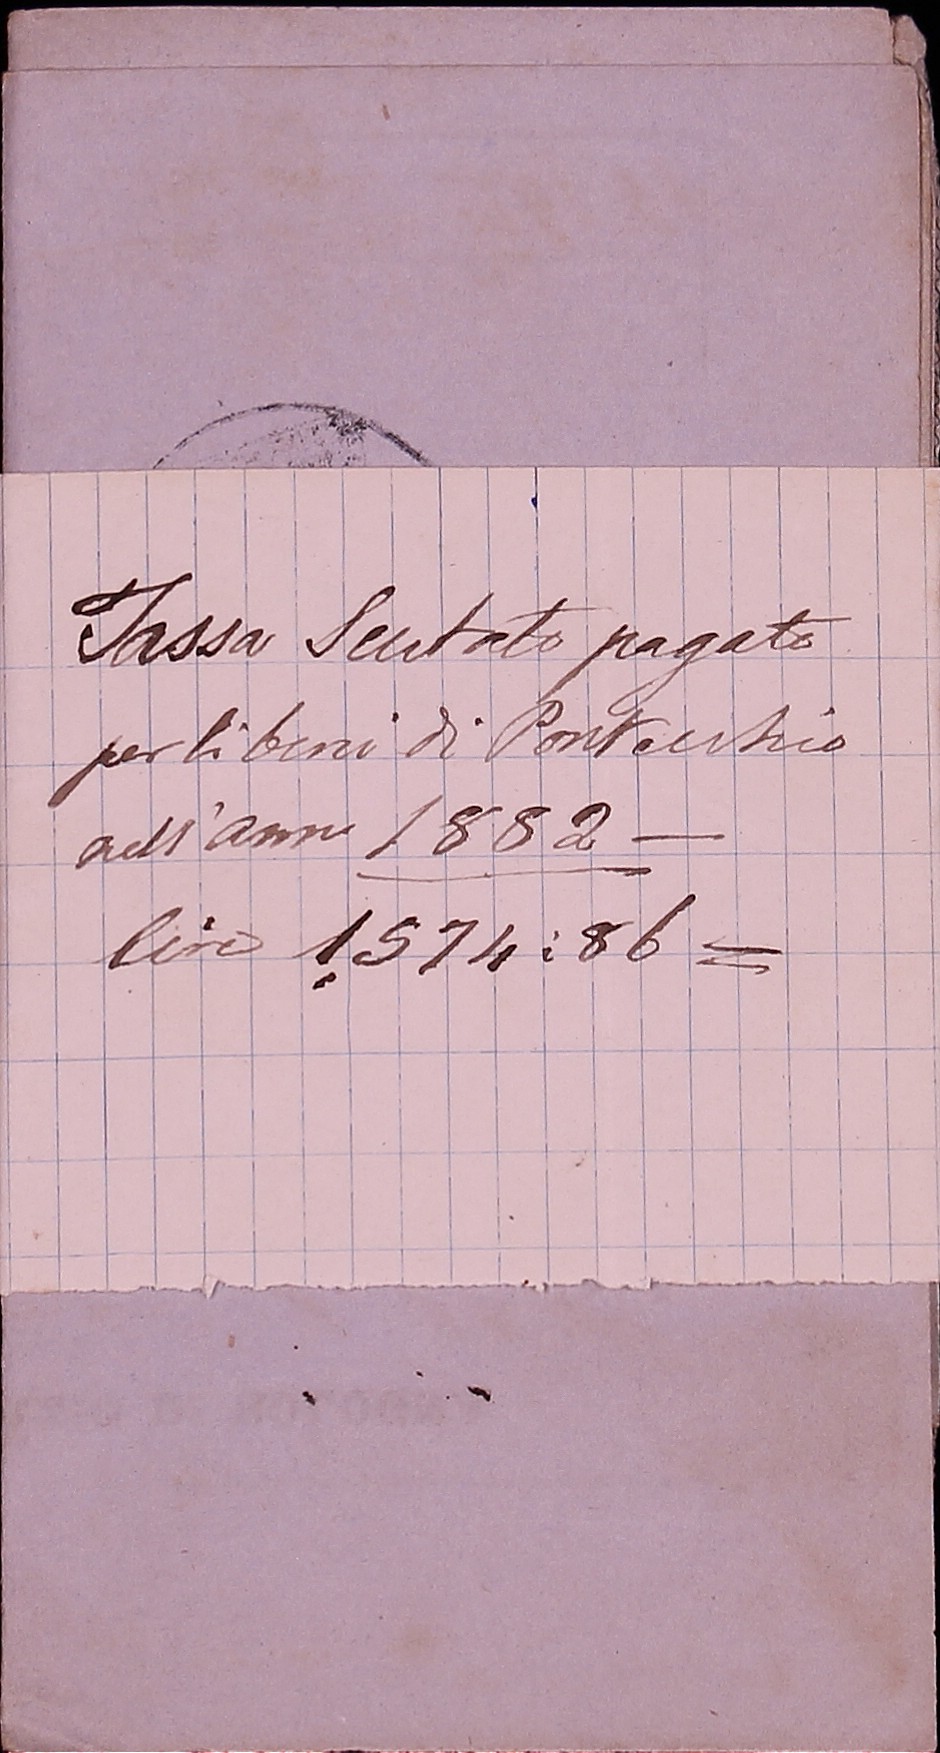 Tassa Scutato pagato
per li beni di Pontecchio
nell'anno 1882 —
lire 1574:86 =